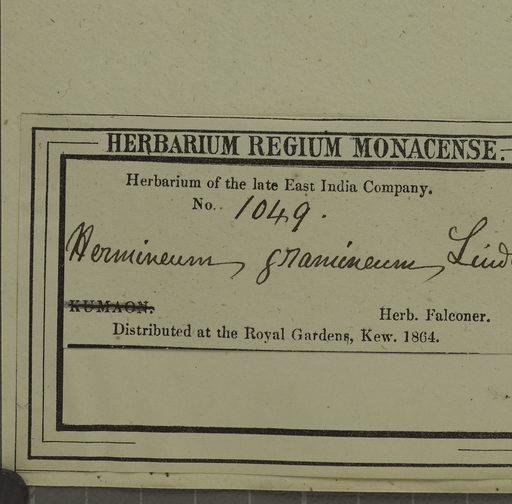 HERBARIUM REGIUM MONACENSE.
Herbarium of the late East India Company.
No. 1049.
Hermineum, gramineum, Lind
KUMAON.
Herb. Falconer.
Distributed at the Royal Gardens, Kew. 1864.